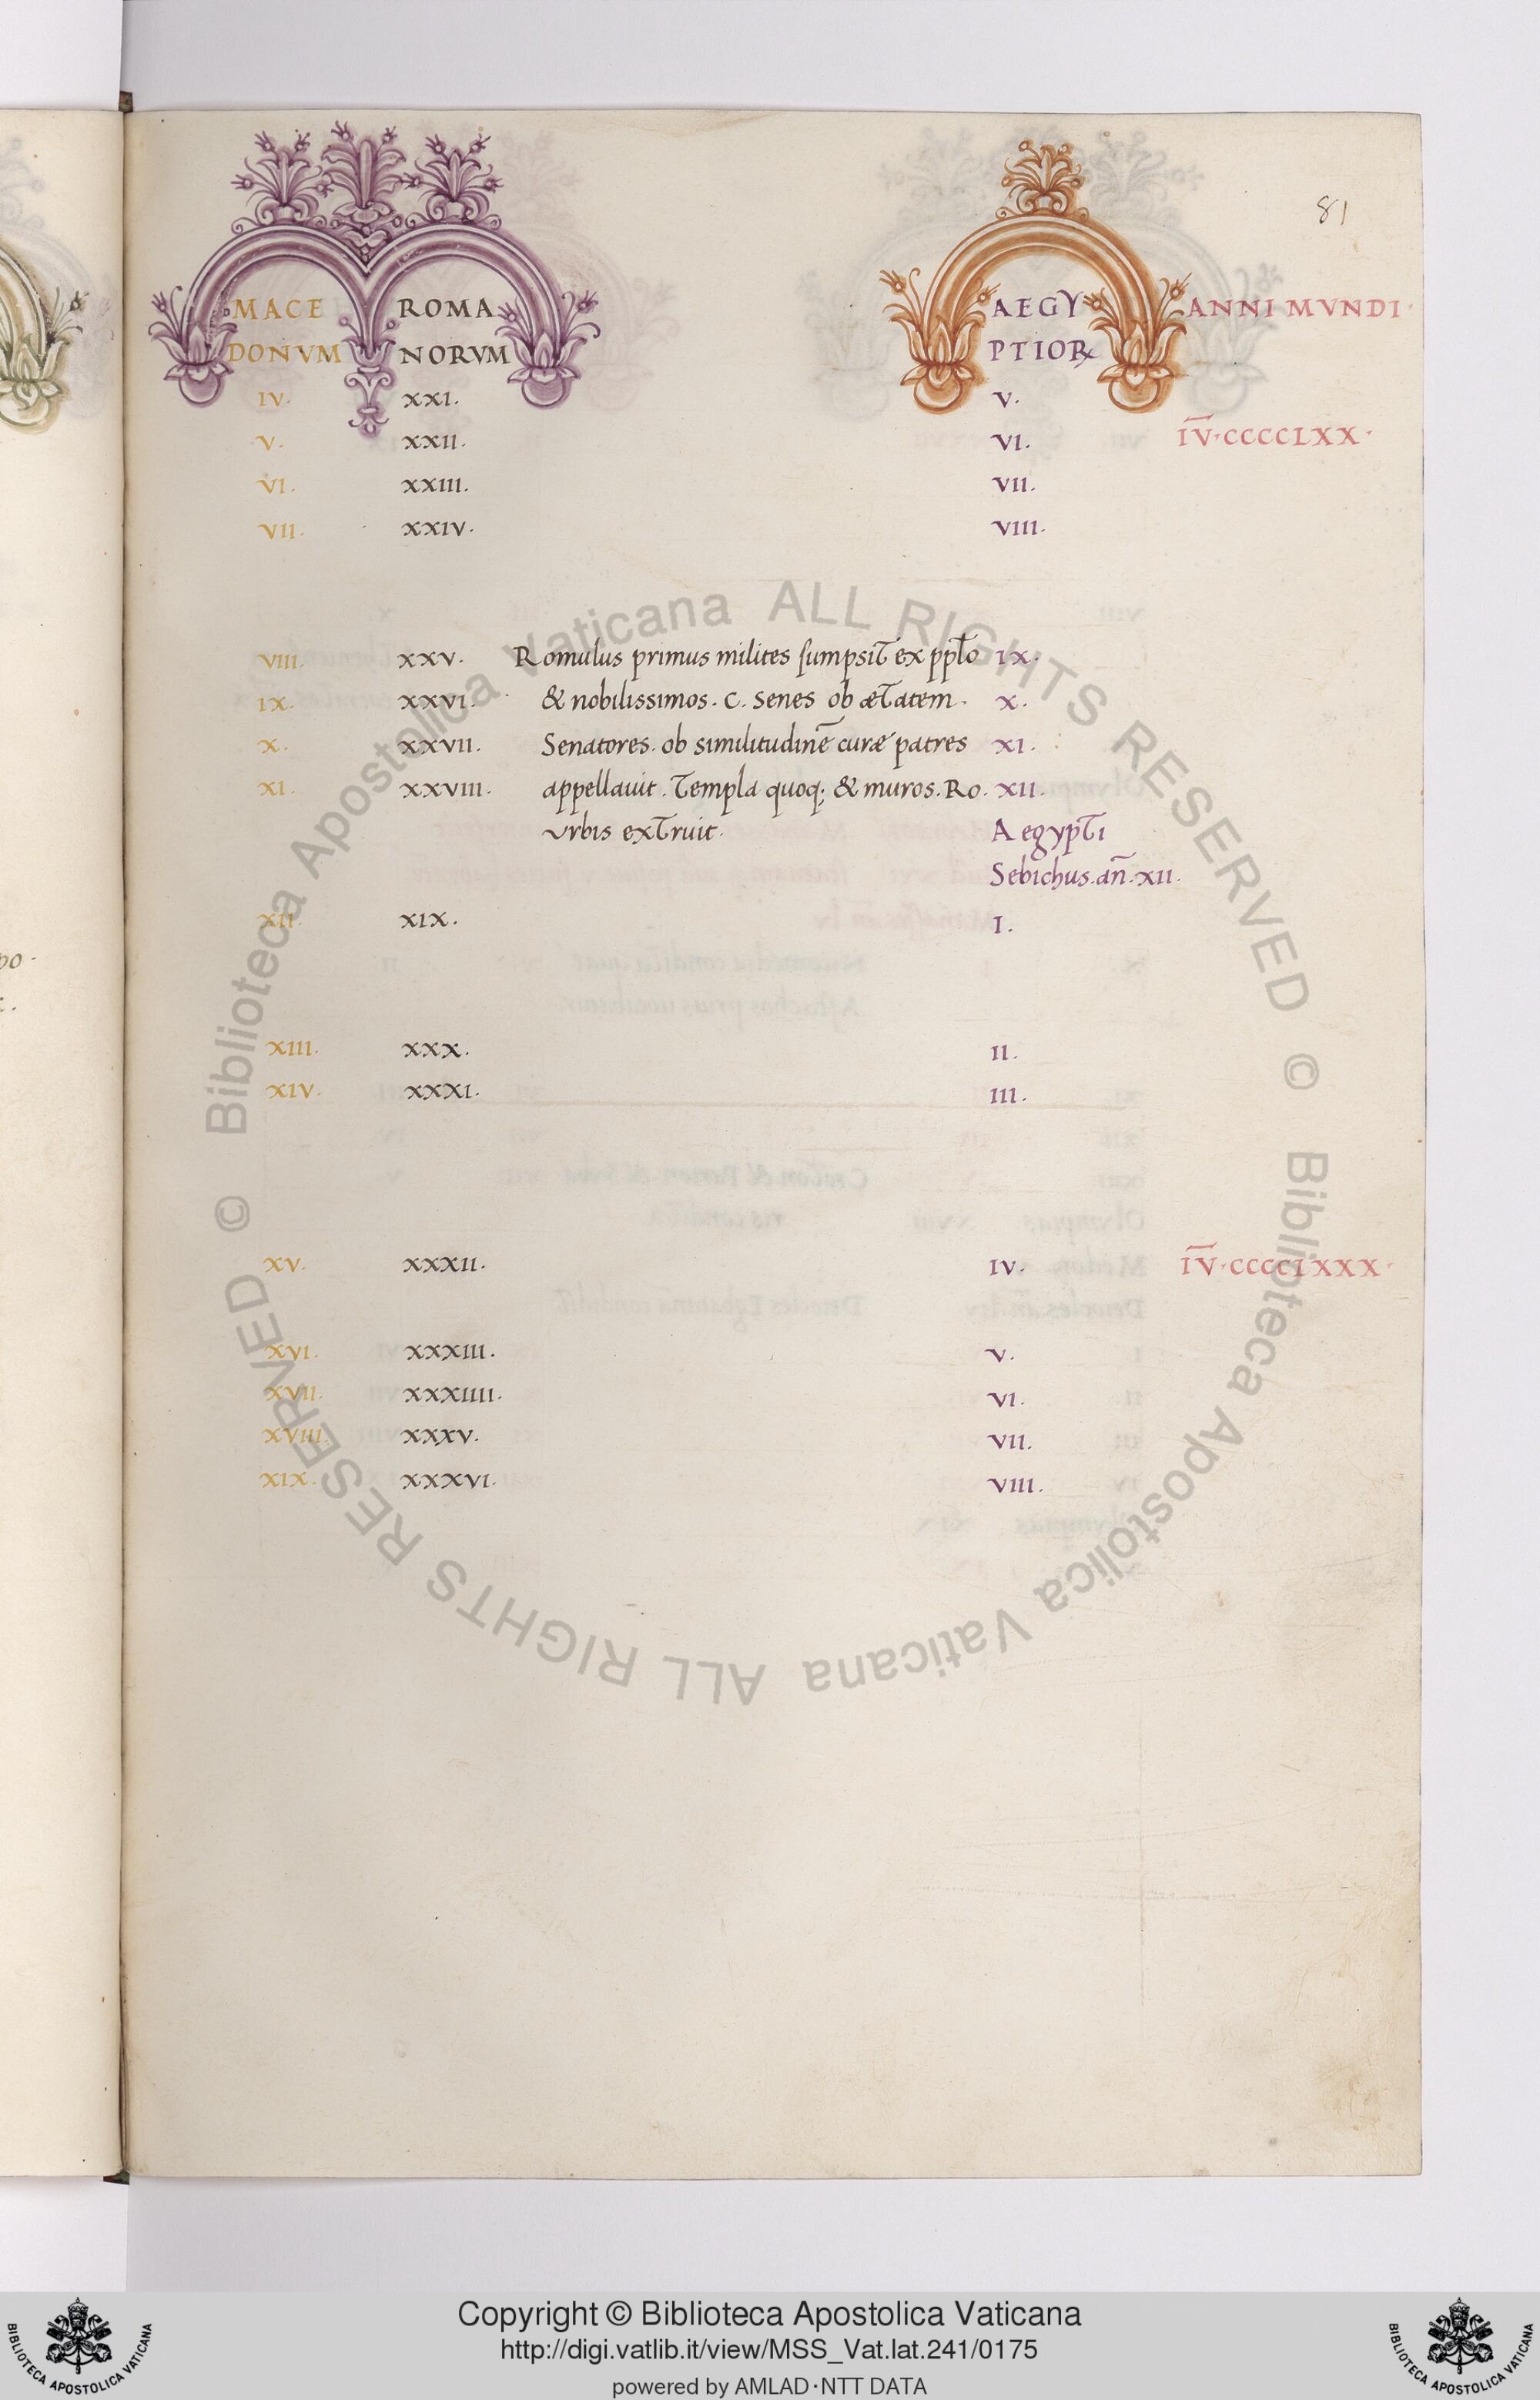 81
MACE ROMA AEGY ANNI MVNDI.
DONVM NORVM PTIOꝜ
IV. XXI. V.
V. XXII. VI. I̅V̅.CCCCLXX.
VI. XXIII. VII.
VII. XXIV. VIII.
VIII. XXV. Romulus primus milites sumpsit ex ppl̄o IX.
IX. XXVI. & nobilissimos. C. senes ob ætatem. X.
X. XXVII. Senatores. ob similitudinē curæ patres XI.
XI. XXVIII. appellauit. Templa quoq; & muros. Ro. XII.
vrbis extruit. Aegypti
Sebichus. an̄. XII.
XII. XIX. I.
XIII. XXX. II.
XIV. XXXI. III.
XV. XXXII. IV. I̅V̅.CCCCLXXX.
XVI. XXXIII. V.
XVII. XXXIIII. VI.
XVIII. XXXV. VII.
XIX. XXXVI. VIII.
© Biblioteca Apostolica Vaticana ALL RIGHTS RESERVED
© Biblioteca Apostolica Vaticana ALL RIGHTS RESERVED
Copyright © Biblioteca Apostolica Vaticana
http://digi.vatlib.it/view/MSS_Vat.lat.241/0175
powered by AMLAD·NTT DATA
BIBLIOTECA APOSTOLICA VATICANA
BIBLIOTECA APOSTOLICA VATICANA